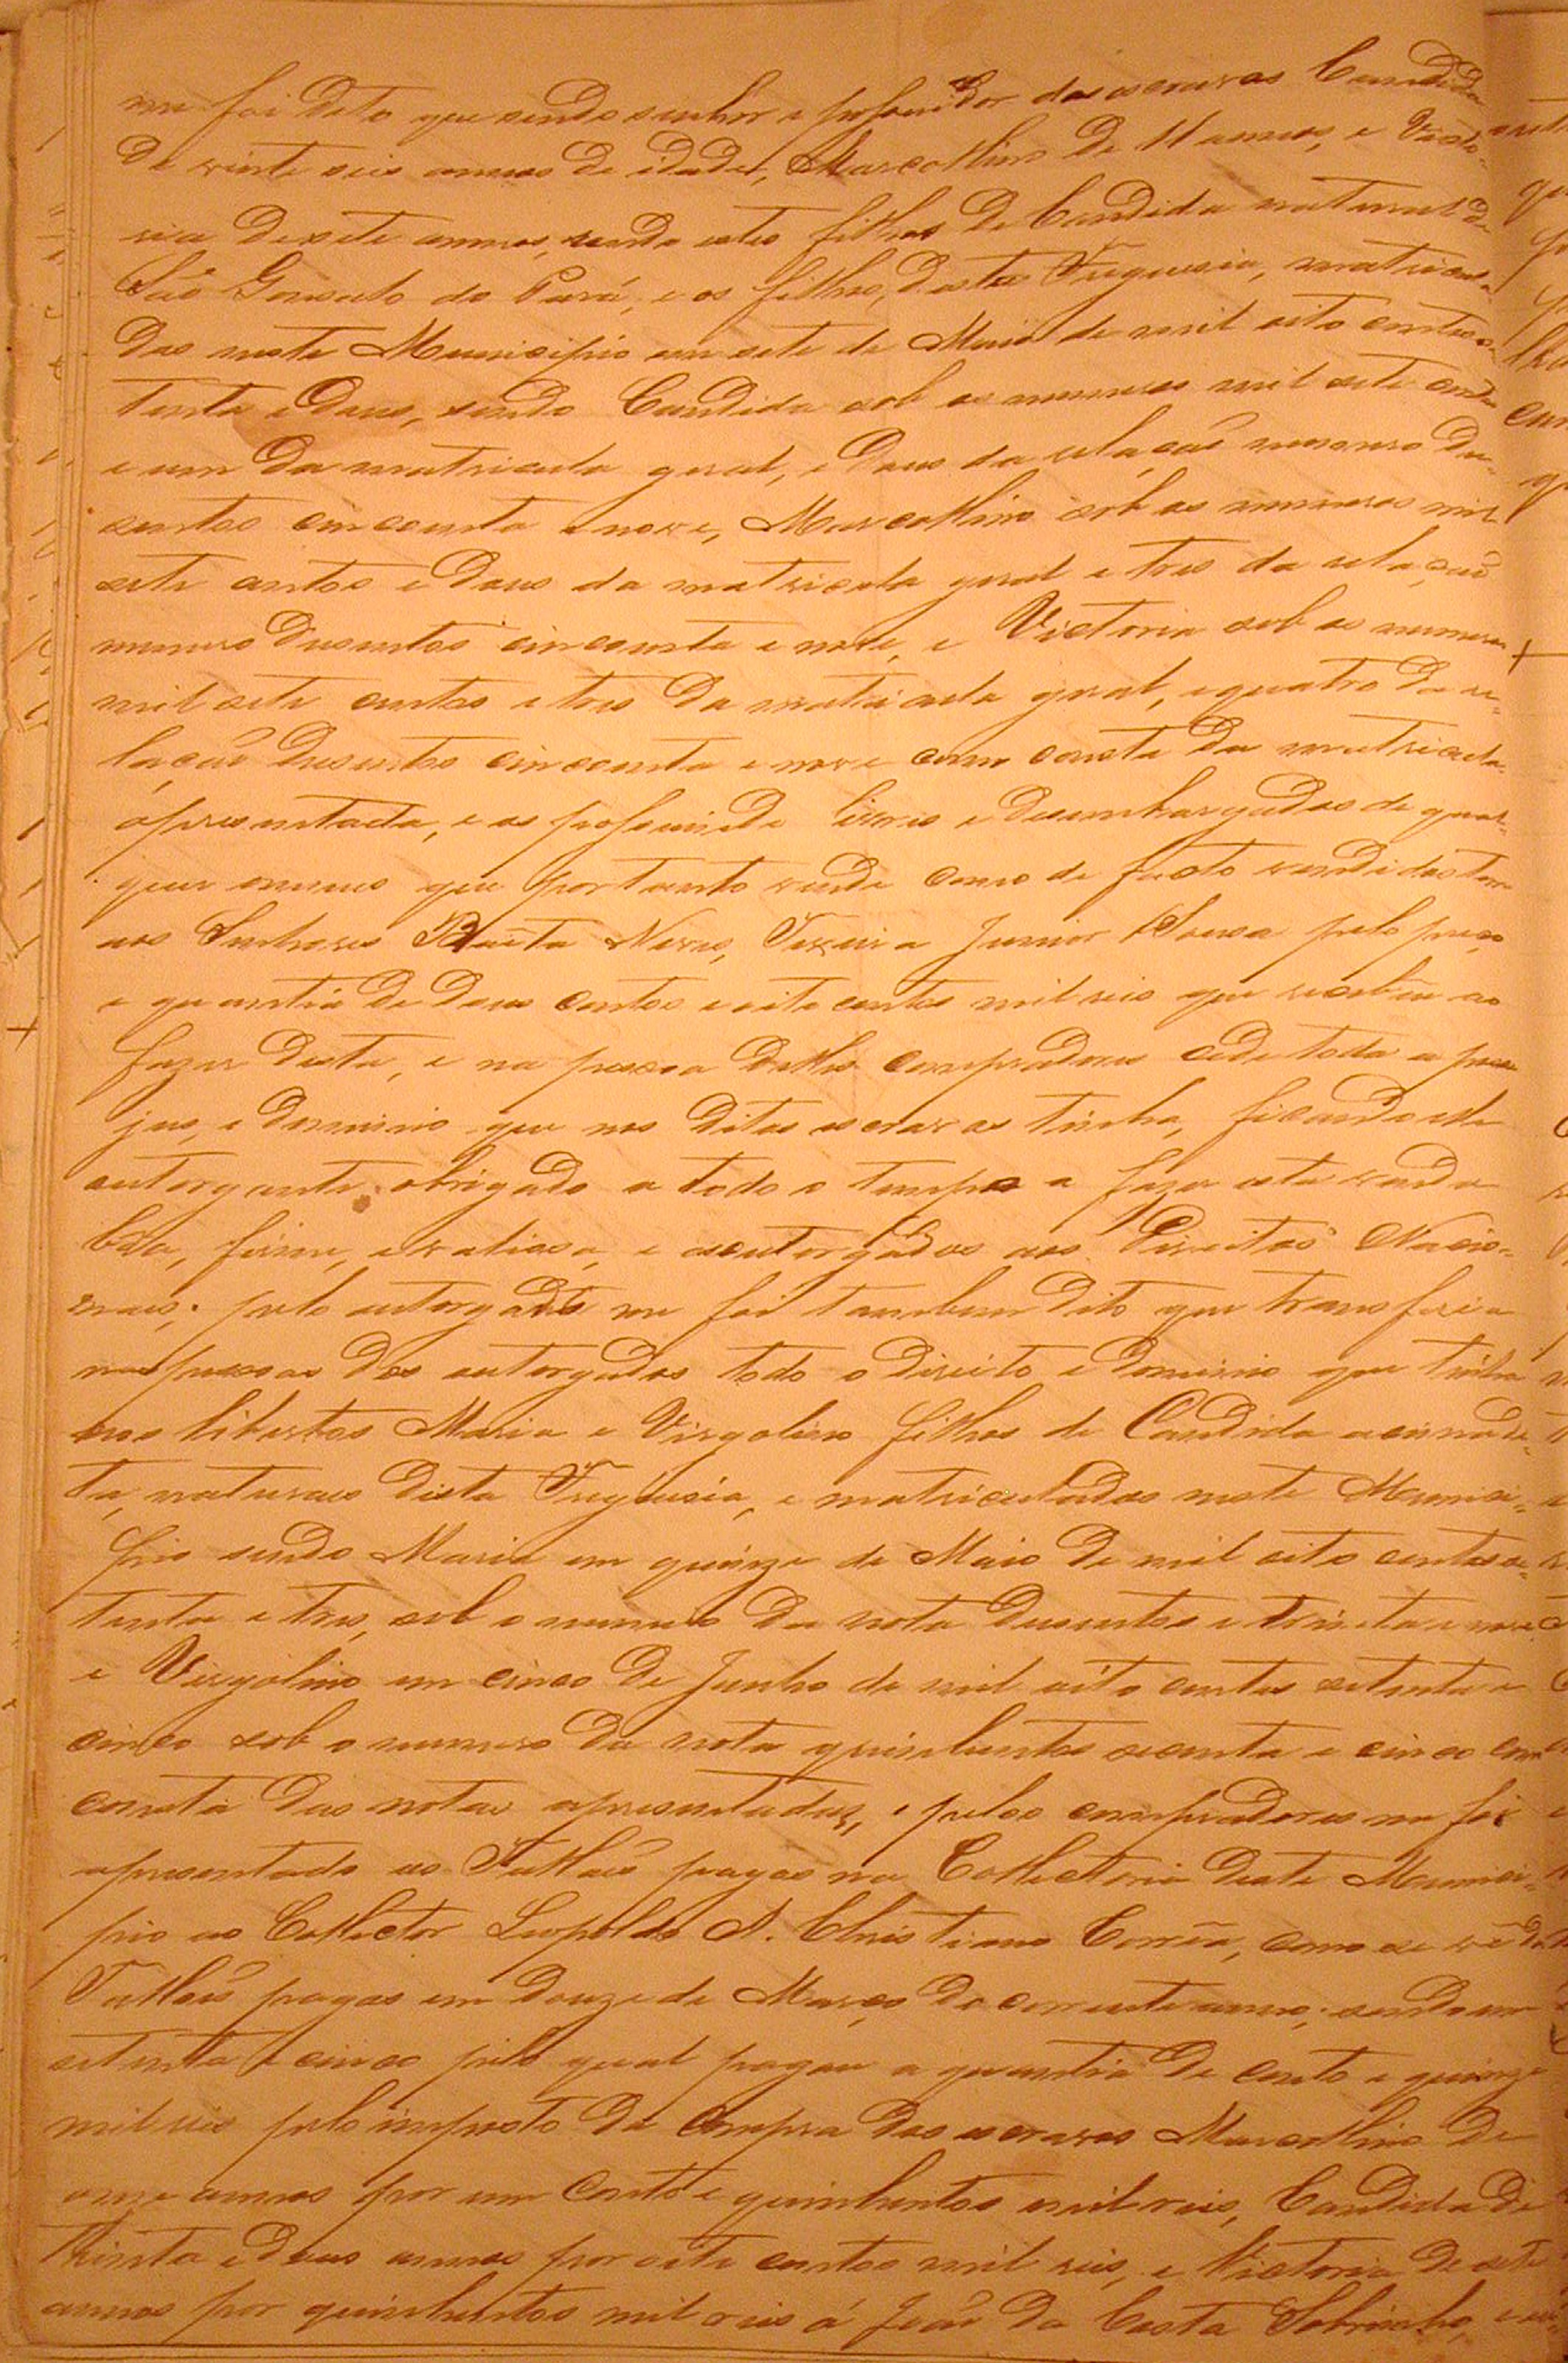 me foi dito que sendo senhor e possuidor dos escravos Candida
de vinte seis annos de idade, Marcollino de 11 annos, e Victo-
ria de sete annos, sendo estes filhos de Candida natural de
São Gonsalo do Pará, e os filhos, desta Freguesia, matricula-
dos neste Municipio em sete de Maio de mil oito centos se-
tenta e dous, sendo Candida sob os numeros mil sete centos
e um da matricula geral, e dous da relação numero du-
sentos cincoenta e nove, Marcollino sob os numeros mil
sete centos e dous da matricula geral e tres da relação
numero dusentos cincoenta e nove, e Victoria sob os numeros
mil sete centos e tres da matricula geral, e quatro da re-
lação dusentos cincoenta e nove como consta da matricula
apresentada, e os possuindo livres e desembargados de qual-
quer onnus que portanto vende como de facto vendidos tem
aos Senhores Baêta Neves, Teixeira Junior & Sousa pelo preço
e quantia de dous contos e oito centos mil reis que recebeu ao
fazer desta, e na pessoa delles compradores cede toda a posse
jus, e dominio que nos ditos escravos tinha, ficando elle
outorgante obrigado a todo o tempo a fazer esta venda
bôa, firme, e valiosa, e os outorgados aos Direitos Nacio-
naes; pelo outorgante me foi tambem dito que transferia
nas pessoas dos outorgados todo o direito e dominio que tinha
nos libertos Maria e Virgolino filhos de Candida acima di-
ta, naturaes desta Freguesia, e matriculados neste Munici-
pio sendo Maria em quinze de Maio de mil oito centos se-
tenta e tres, sob o numero da nota dusentos e trinta e nove
e Virgolino em cinco de Junho de mil oito centos setenta e
cinco sob o numero da nota quinhentos secenta e cinco como
consta das notas apresentadas, e pelos compradores me foi
apresentado os Tallões pagos na Collectoria deste Munici-
pio ao Collector Leopoldo A. Christiano Corrêa, como se vê dos
Tallões pagos em douze de Março do corrente anno; sendo um
setenta e cinco pelo qual pagou a quantia de cento e quinze
mil reis pelo imposto da compra dos escravos Marcollino de
onze annos por um conto e quinhentos mil reis, Candida de
trinta e dous annos por oito centos mil reis, e Victoria de sete
annos por quinhentos mil reis á João da Costa Sobrinho,